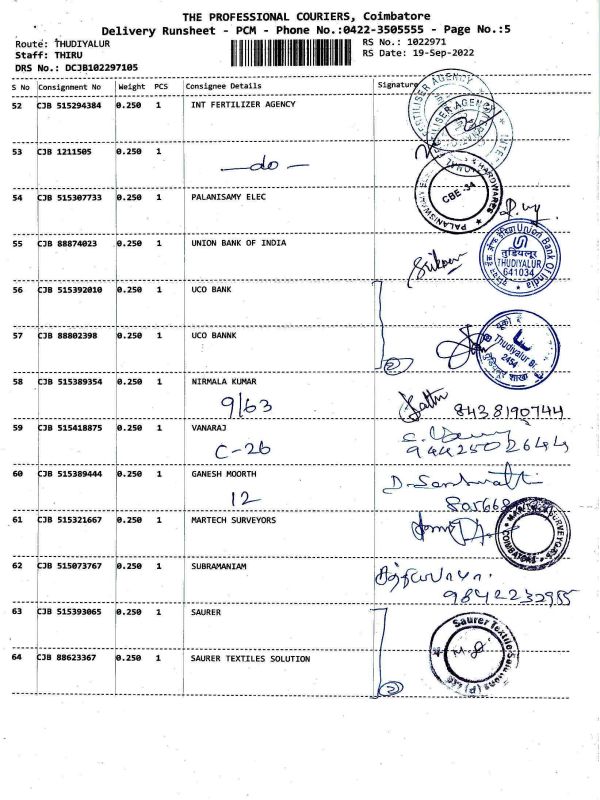 THE PROFESSIONAL COURIERS, Coimbatore
Delivery Runsheet - PCM - Phone No.:0422-3505555 - Page No.:5
Route: THUDIYALUR RS No.: 1022971
Staff: THIRU RS Date: 19-Sep-2022
DRS No.: DCJB102297105
S No Consignment No Weight PCS Consignee Details Signature
52 CJB 515294384 0.250 1 INT FERTILIZER AGENCY
53 CJB 1211505 0.250 1 —do—
54 CJB 515307733 0.250 1 PALANISAMY ELEC
PALANISWAMY ELE HARDWARES CBE-34
55 CJB 88874023 0.250 1 UNION BANK OF INDIA
Union Bank Of India
तुडियलूर
THUDIYALUR
641034
56 CJB 515392010 0.250 1 UCO BANK
57 CJB 88802398 0.250 1 UCO BANNK
2
Thudiyalur
2454
शाखा
58 CJB 515389354 0.250 1 NIRMALA KUMAR
9/63 8438190744
59 CJB 515418875 0.250 1 VANARAJ
C-26 9442502644
60 CJB 515389444 0.250 1 GANESH MOORTH
12
61 CJB 515321667 0.250 1 MARTECH SURVEYORS
COIMBATORE
62 CJB 515073767 0.250 1 SUBRAMANIAM
63 CJB 515393065 0.250 1 SAURER
64 CJB 88623367 0.250 1 SAURER TEXTILES SOLUTION
2
Saurer Textile Solutions (P) Ltd